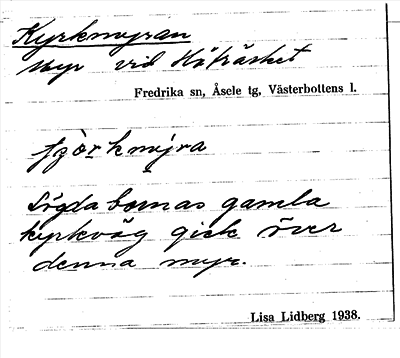 Kyrkmyran
Myr vid Höträsket
Fredrika sn, Åsele tg, Västerbottens l.
Lögdabornas gamla
kyrkväg gick över
denna myr.
Lisa Lidberg 1938.